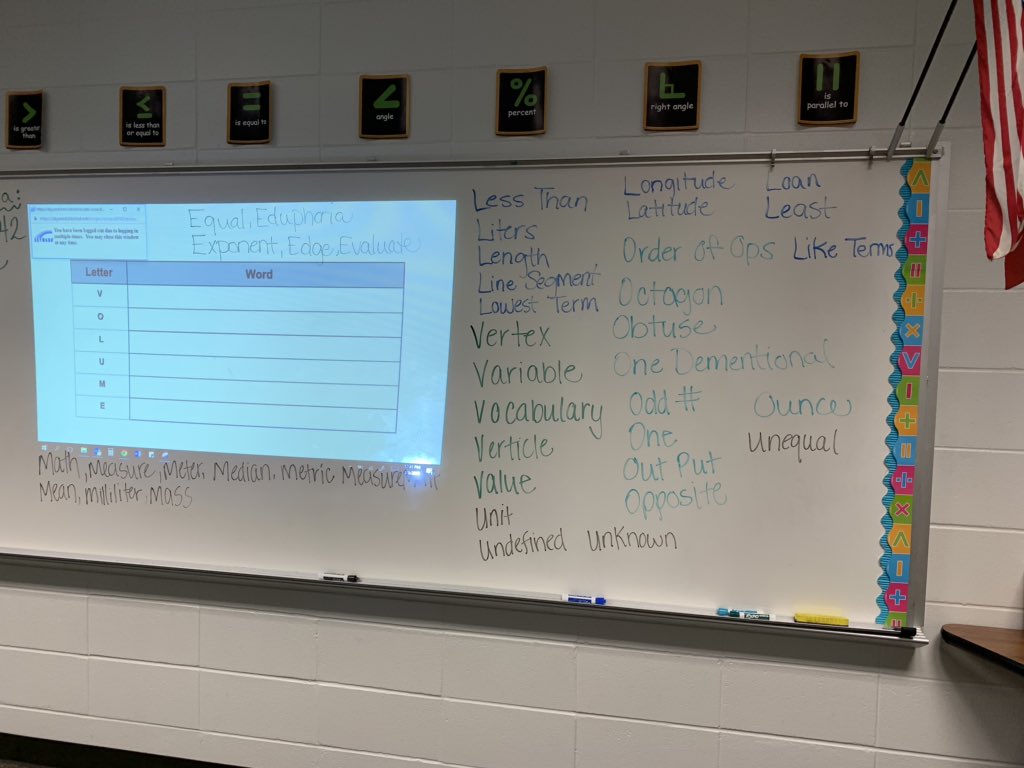 > is greater than
≤ is less than or equal to
= is equal to
∠ angle
% percent
right angle
|| is parallel to
a:
42
You have been logged out due to logging in multiple times. You may close this window at any time.
Equal, Eduphoria
Exponent, Edge, Evaluate
Letter Word
V
O
L
U
M
E
Math, Measure, Meter, Median, Metric Measure
Mean, milliliter, Mass
Less Than
Liters
Length
Line Segment
Lowest Term
Vertex
Variable
Vocabulary
Verticle
Value
Unit
Undefined Unknown
Longitude Loan
Latitude Least
Order of Ops Like Terms
Octagon
Obtuse
One Dementional
Odd # Ounce
One unequal
Out Put
Opposite